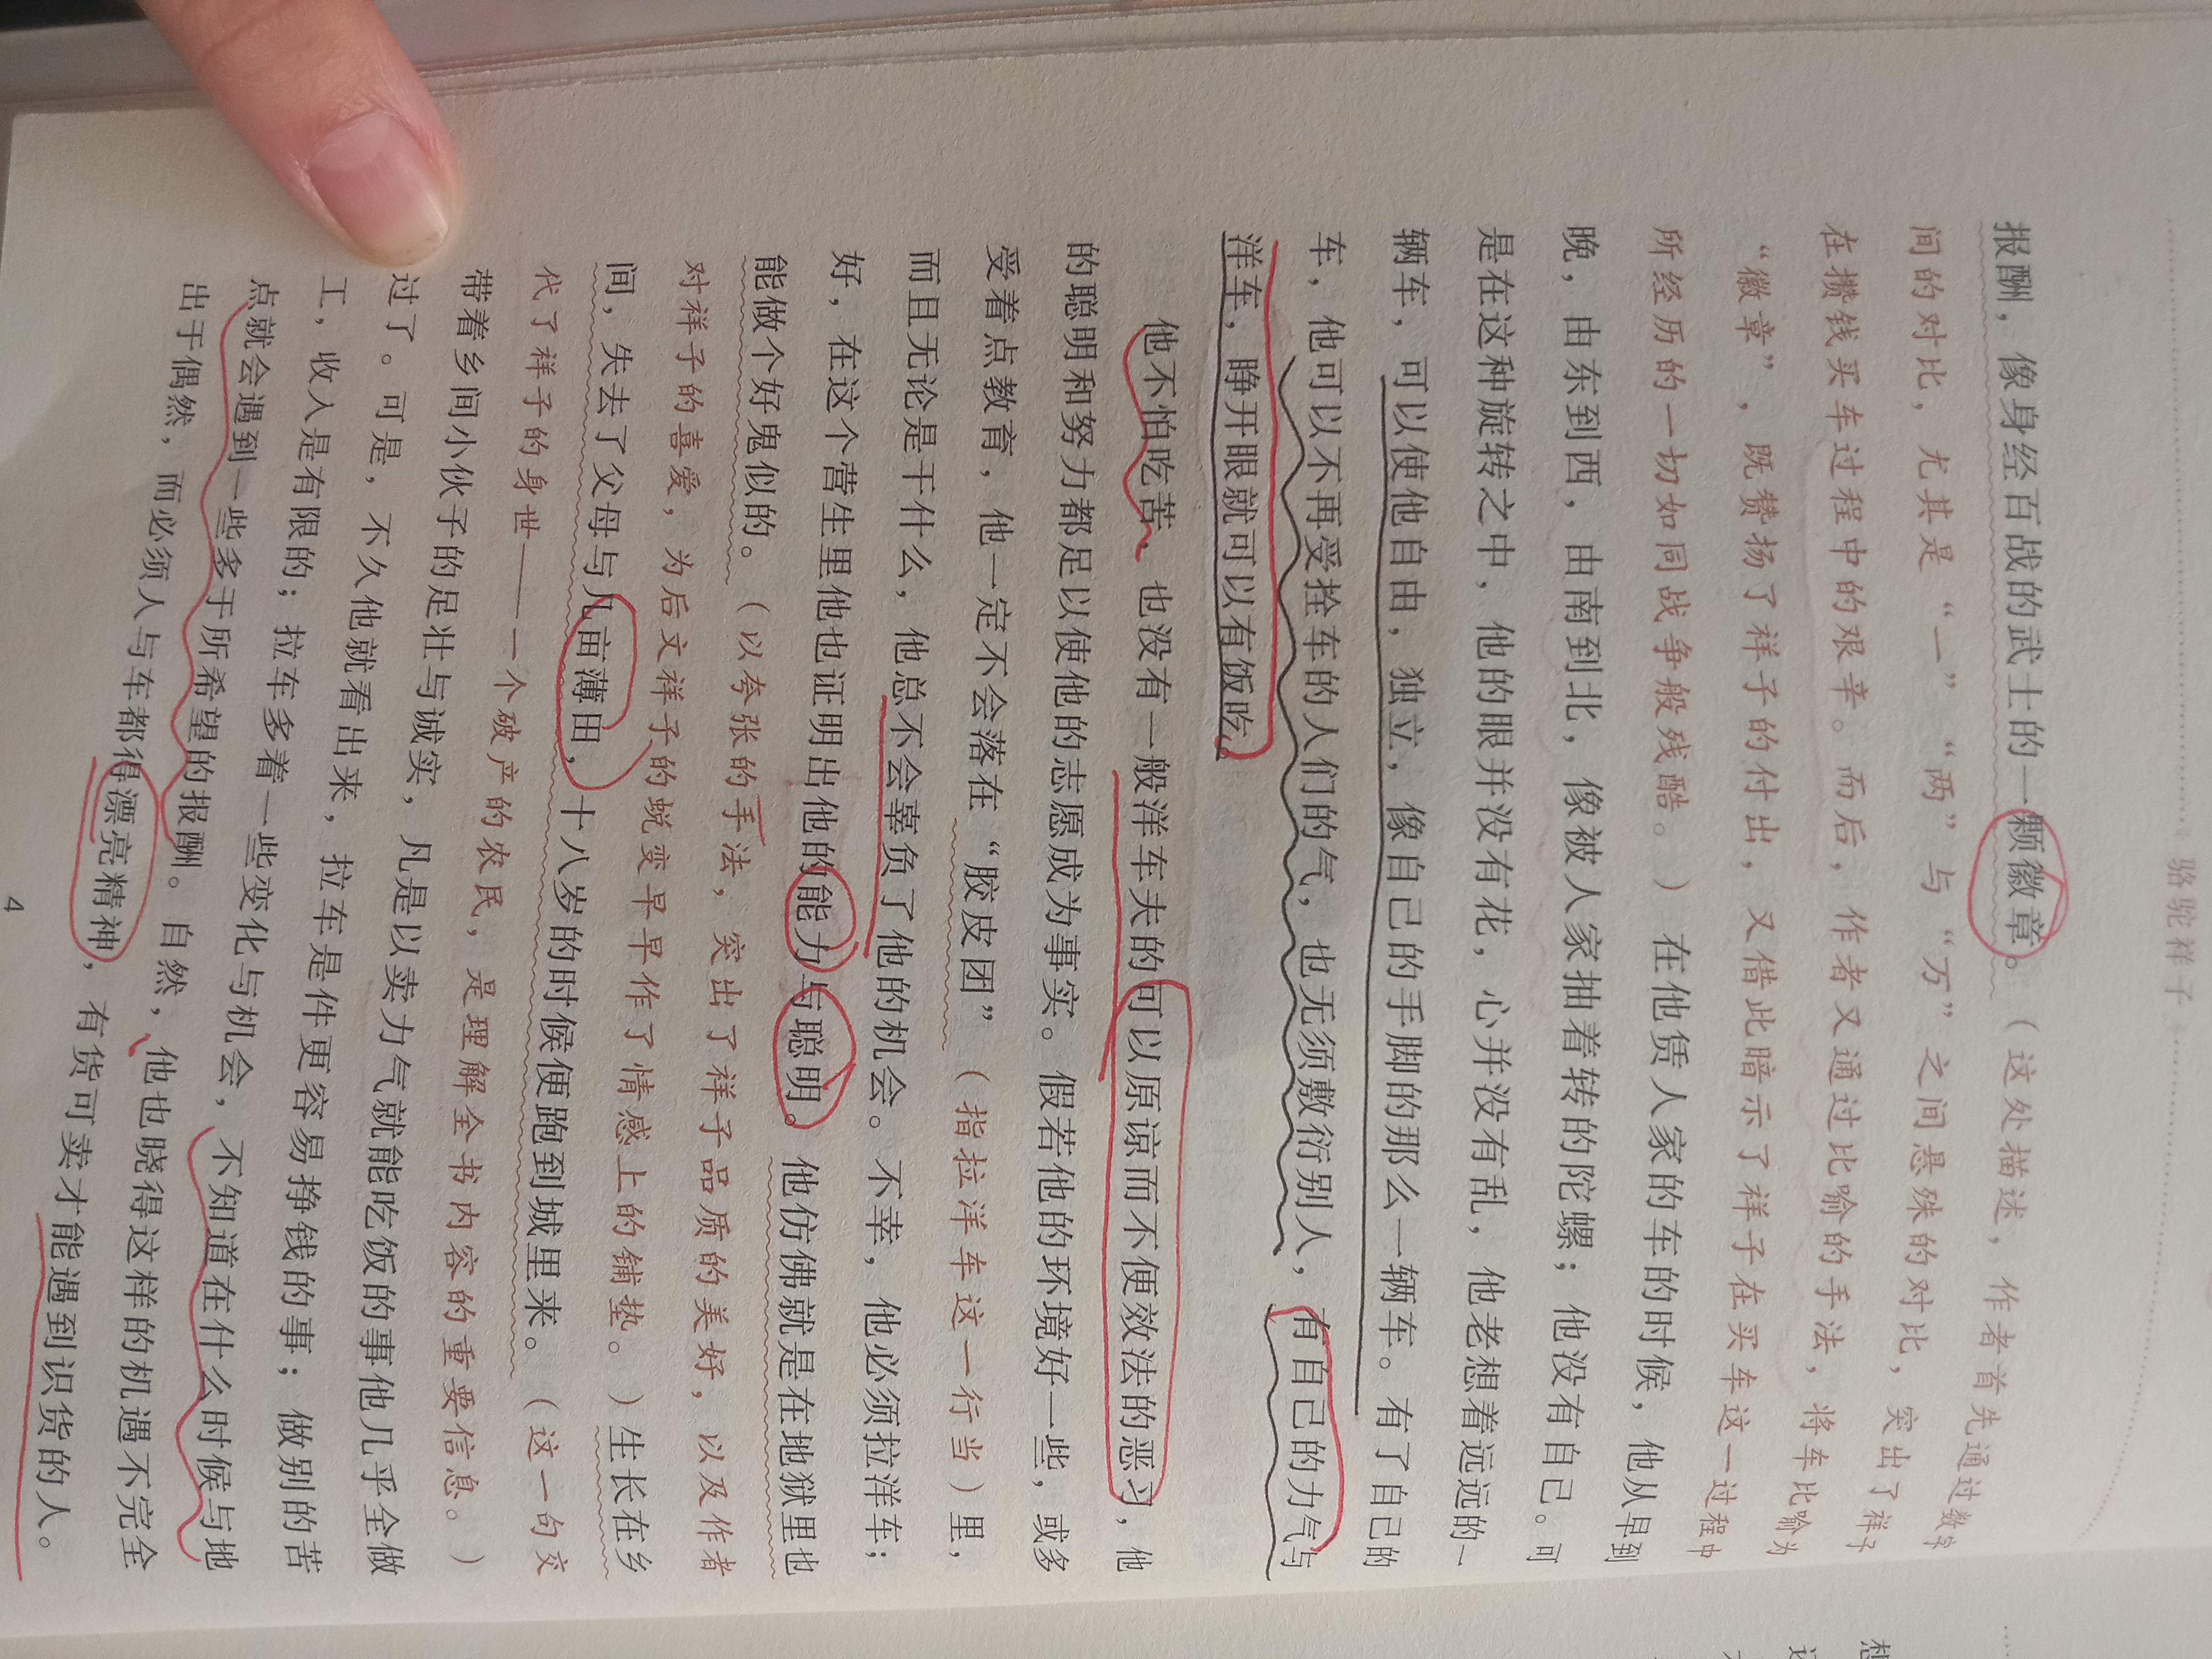 骆驼祥子
报酬，像身经百战的武士的一颗徽章。（这处描述，作者首先通过数字
间的对比，尤其是“一”“两”与“万”之间悬殊的对比，突出了祥子
在攒钱买车过程中的艰辛。而后，作者又通过比喻的手法，将车比喻为
“徽章”，既赞扬了祥子的付出，又借此暗示了祥子在买车这一过程中
所经历的一切如同战争般残酷。）在他赁人家的车的时候，他从早到
晚，由东到西，由南到北，像被人家抽着转的陀螺；他没有自己。可
是在这种旋转之中，他的眼并没有花，心并没有乱，他老想着远远的一
辆车，可以使他自由，独立，像自己的手脚的那么一辆车。有了自己的
车，他可以不再受拴车的人们的气，也无须敷衍别人，有自己的力气与
洋车，睁开眼就可以有饭吃。
他不怕吃苦，也没有一般洋车夫的可以原谅而不便效法的恶习，他
的聪明和努力都足以使他的志愿成为事实。假若他的环境好一些，或多
受着点教育，他一定不会落在“胶皮团”（指拉洋车这一行当）里，
而且无论是干什么，他总不会辜负了他的机会。不幸，他必须拉洋车；
好，在这个营生里他也证明出他的能力与聪明。他仿佛就是在地狱里也
能做个好鬼似的。（以夸张的手法，突出了祥子品质的美好，以及作者
对祥子的喜爱，为后文祥子的蜕变早早作了情感上的铺垫。）生长在乡
间，失去了父母与几亩薄田，十八岁的时候便跑到城里来。（这一句交
代了祥子的身世——一个破产的农民，是理解全书内容的重要信息。）
带着乡间小伙子的足壮与诚实，凡是以卖力气就能吃饭的事他几乎全做
过了。可是，不久他就看出来，拉车是件更容易挣钱的事；做别的苦
工，收入是有限的；拉车多着一些变化与机会，不知道在什么时候与地
点就会遇到一些多于所希望的报酬。自然，他也晓得这样的机遇不完全
出于偶然，而必须人与车都得漂亮精神，有货可卖才能遇到识货的人。
4
想